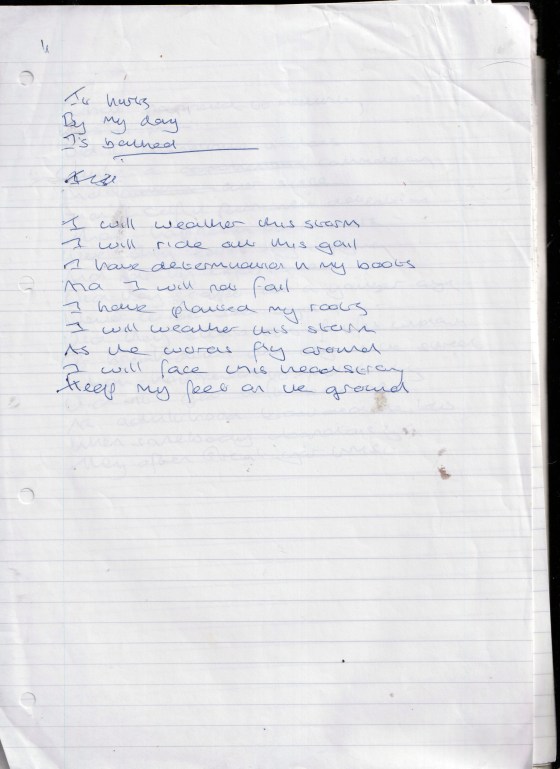 It hurts
By my day
Is
I will weather this storm
I will ride out this gail
I have determination in my boots
And I will not fail
I have planted my roots
I will weather this storm
As the words fly around
I will face this headstrong
Keep my feet on the ground